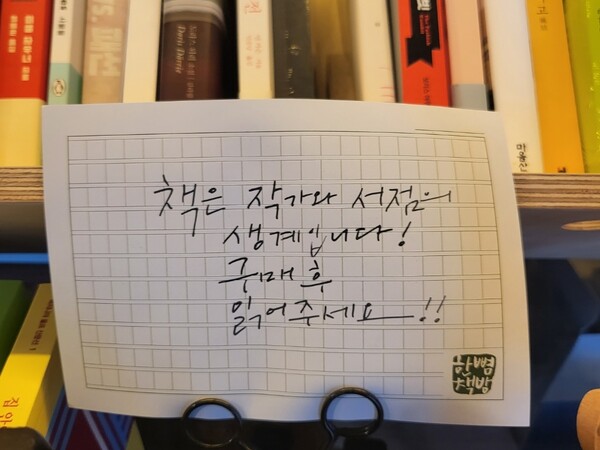 Doris Dörrie
책은 작가와 서점의
생계입니다!
구매 후
읽어주세요!!
한뼘
책방